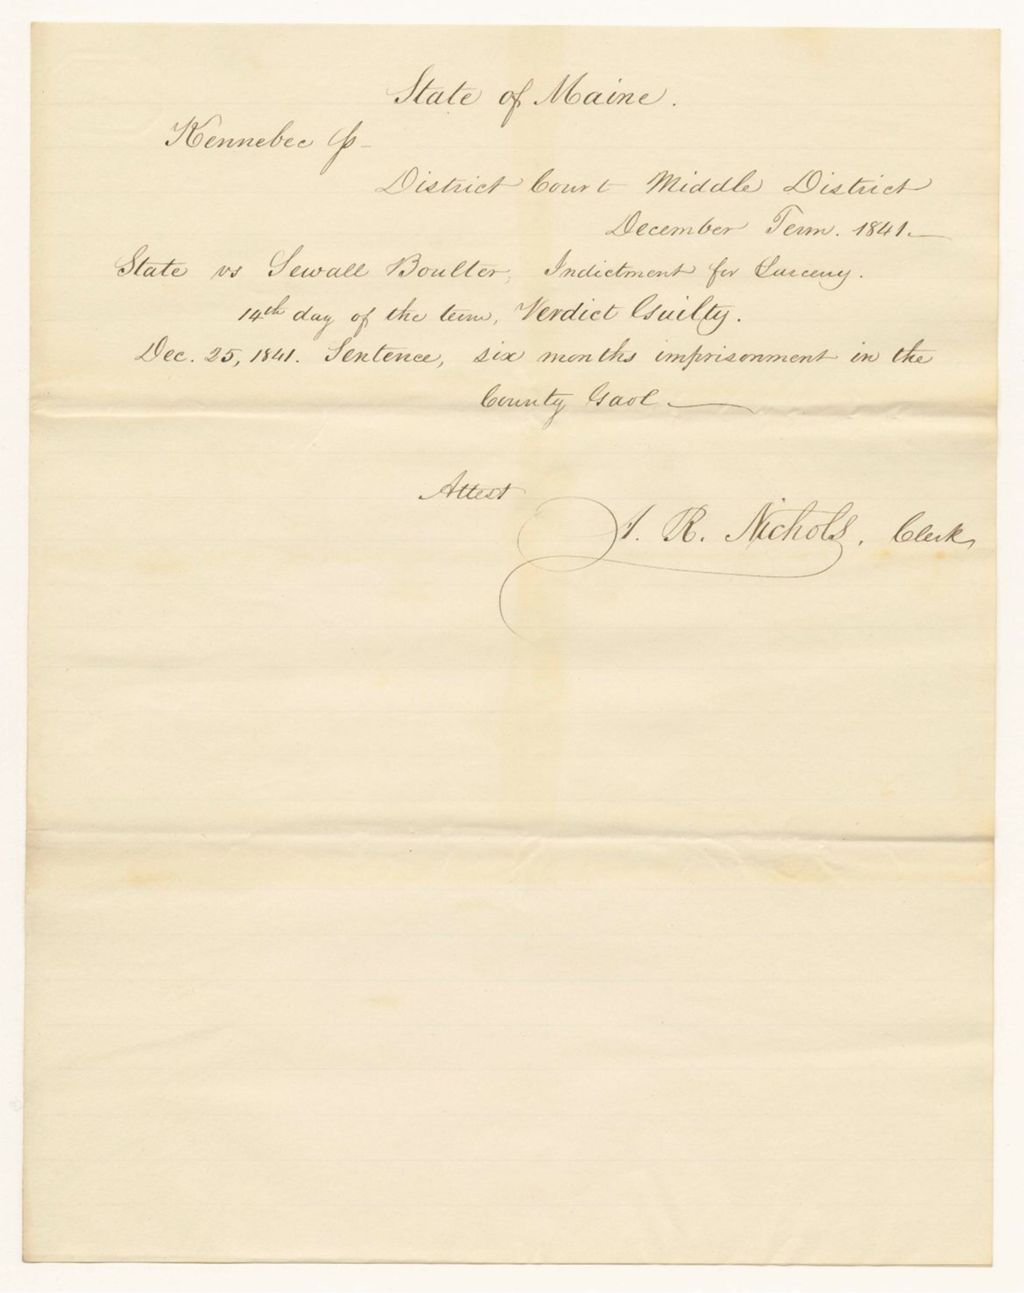 State of Maine.
Kennebec ss
District Court Middle District
December Term. 1841.
State vs Sewall Boulter, Indictment for Larceny.
14th day of the term, Verdict Guilty.
Dec. 25, 1841. Sentence, six months imprisonment in the
County Gaol
Attest
J. R. Nichols, Clerk